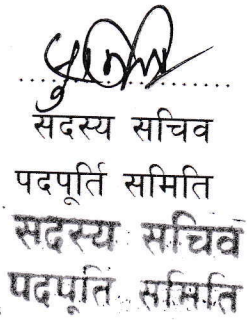 सदस्य सचिव
पदपूर्ति समिति
सदस्य सचिव
पदपूर्ति समिति